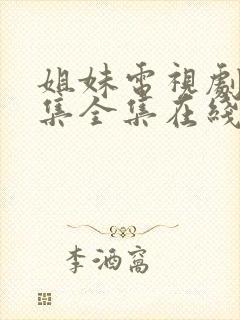 姐妹電視劇
集全集在綫
李酒窩